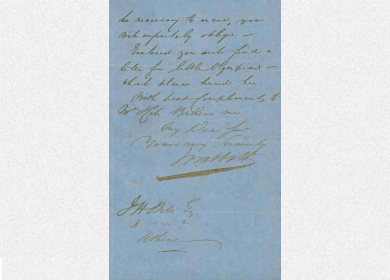 be necessary to send, you
will infinitely oblige —
Enclosed you will find a
letter for little Olympias —
that please hand her
With best Compliments to
Mrs
My Dear Sir
Yours very sincerely
J H Esq
Athens